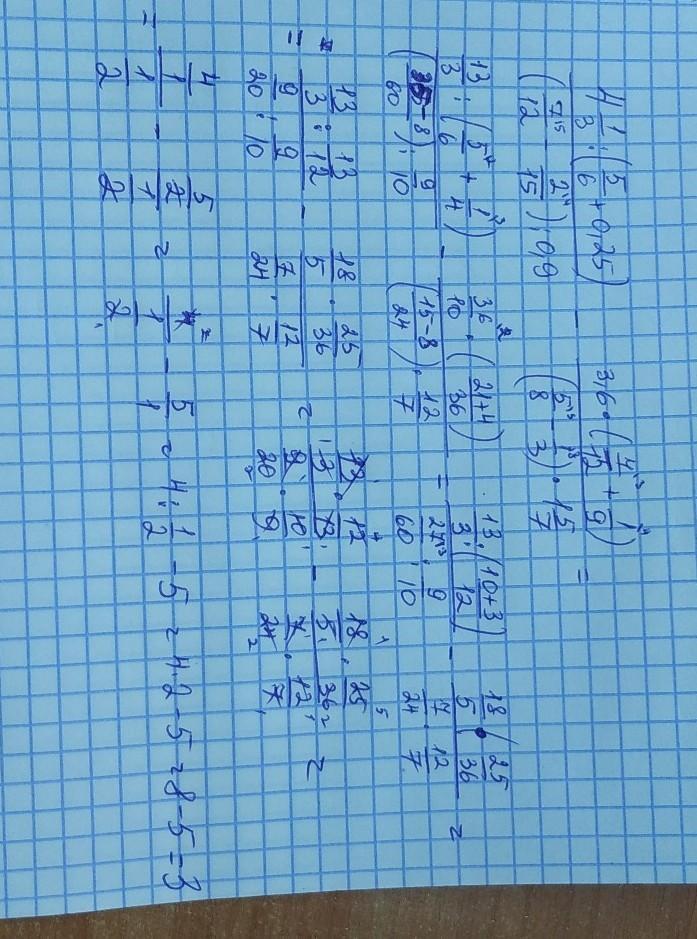 (4 1/3 : (5/6 + 0,25)) / ((7/12 - 2/15) : 0,9) - (3,6 · (4/12 + 1/9)) / ((5/8 - 1/3) · 15/7) =
(13/3 : (5/6 + 1/4)) / ((35-8)/60 : 9/10) - (36/10 · (21+4)/36) / ((15-8)/24 · 12/7) = (13/3 : (10+3)/12) / (27/60 : 9/10) - (18/5 · 25/36) / (7/24 · 12/7) =
= (13/3 : 13/12) / (9/20 : 9/10) - (18/5 · 25/36) / (7/24 · 12/7) = (13/3 · 12/13) / (9/20 · 10/9) - (18/5 · 25/36) / (7/24 · 12/7) =
= (4/1) / (1/2) - (5/2) / (1/2) = 4 / (1/2) - 5/1 = 4 : 1/2 - 5 = 4·2 - 5 = 8 - 5 = 3